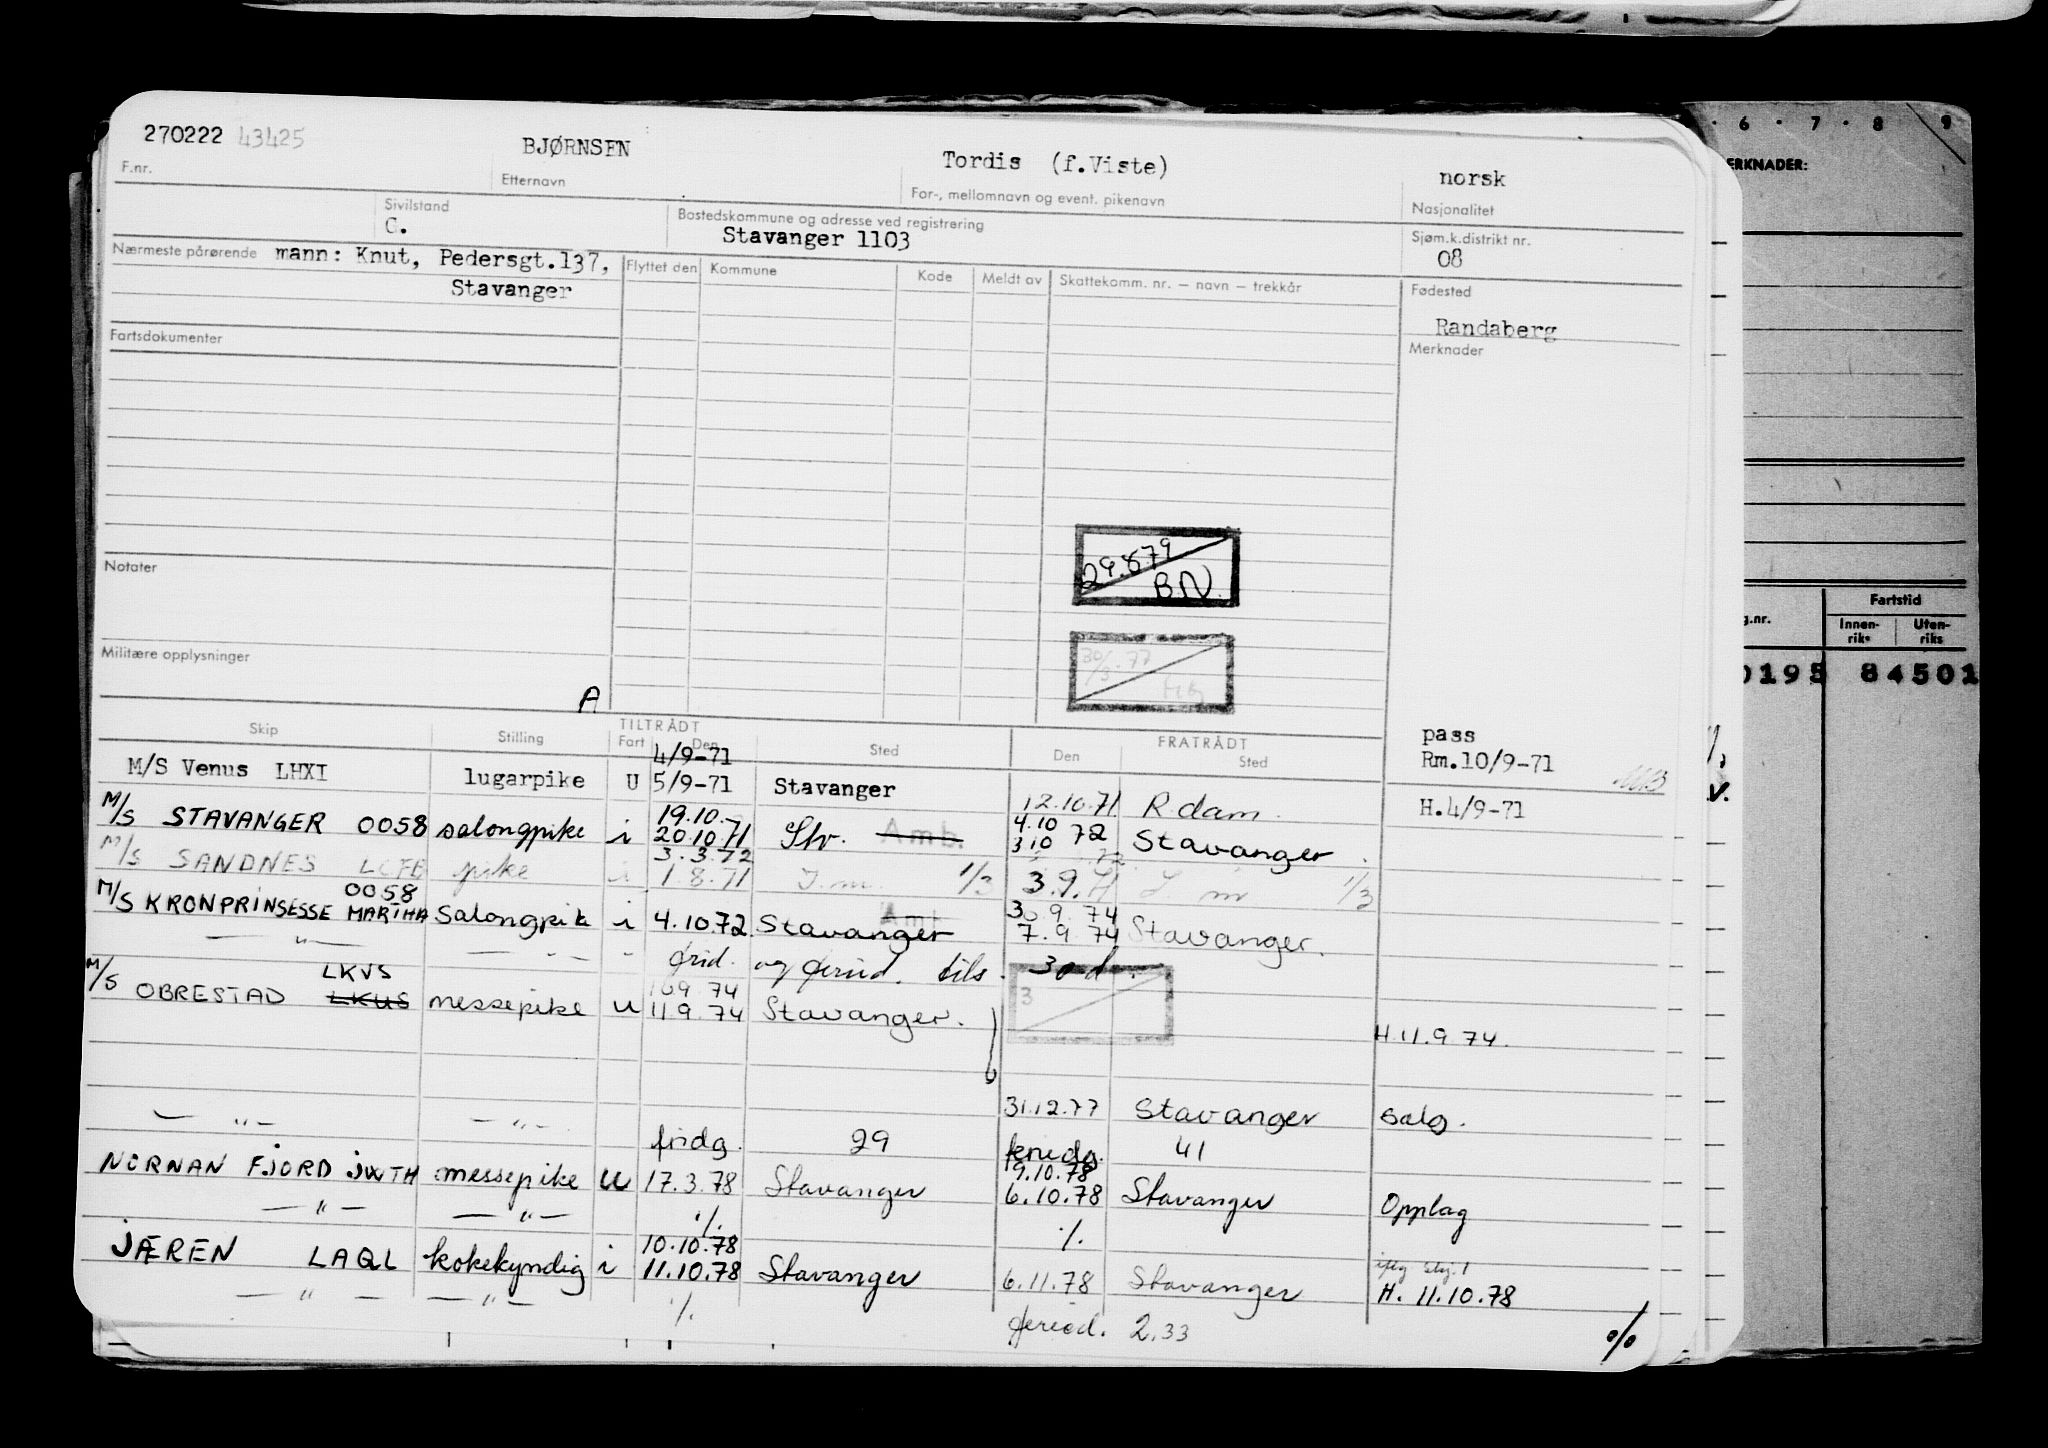 270222 43425 BJØRNSEN Tordis (f.Viste) norsk
F.nr. Etternavn For-, mellomnavn og event. pikenavn Nasjonalitet
Sivilstand Bostedskommune og adresse ved registrering Sjøm.k.distrikt nr.
G. Stavanger 1103 08
Nærmeste pårørende mann: Knut, Pedersgt.137, Flyttet den Kommune Kode Meldt av Skattekomm. nr. — navn — trekkår Fødested
Stavanger
Randaberg
Fartsdokumenter Merknader
29.8 79
B.N.
Notater
30/3.77
Militære opplysninger
A
TILTRÅDT FRATRÅDT
Skip Stilling Fart Den Sted Den Sted
pass
4/9-71
M/S Venus LHXI lugarpike U 5/9-71 Stavanger 12.10.71 R.dam. Rm.10/9-71
19.10. 4.10 H.4/9-71
M/S STAVANGER 0058 salongpike i 20.10.71 Stv. Amb. 3 10 72 Stavanger.
3.3.72
M/S SANDNES LCFB pike i 1.8.71 J.m. 1/3 3.9.71 J m 1/3
0058 30.9.74
M/S KRONPRINSESSE MARTHA Salongpik i 4.10.72 Stavanger 7.9.74 Stavanger.
— " — — " — frid. og feried. tils. 30 d.
LKVS 10 9 74
M/S OBRESTAD LKUS messepike U 11 9.74 Stavanger. 3
H.11.9.74.
— " — — " — 31.12.77 Stavanger salg.
fridg. 29 feriedg. 41
9.10.78
NORNAN FJORD JWTH messepike U 17.3.78 Stavanger 6.10.78 Stavanger Opplag
— " — — " — ./. ./.
10.10.78
JÆREN LAQL kokekyndig i 11.10.78 Stavanger 6.11.78 Stavanger H. 11.10.78
— " — — " — ./. feried. 2.33
o/o
6 7 8 9
ERKNADER:
Fartstid
g.nr. Innen-riks Uten-riks
0195 84501